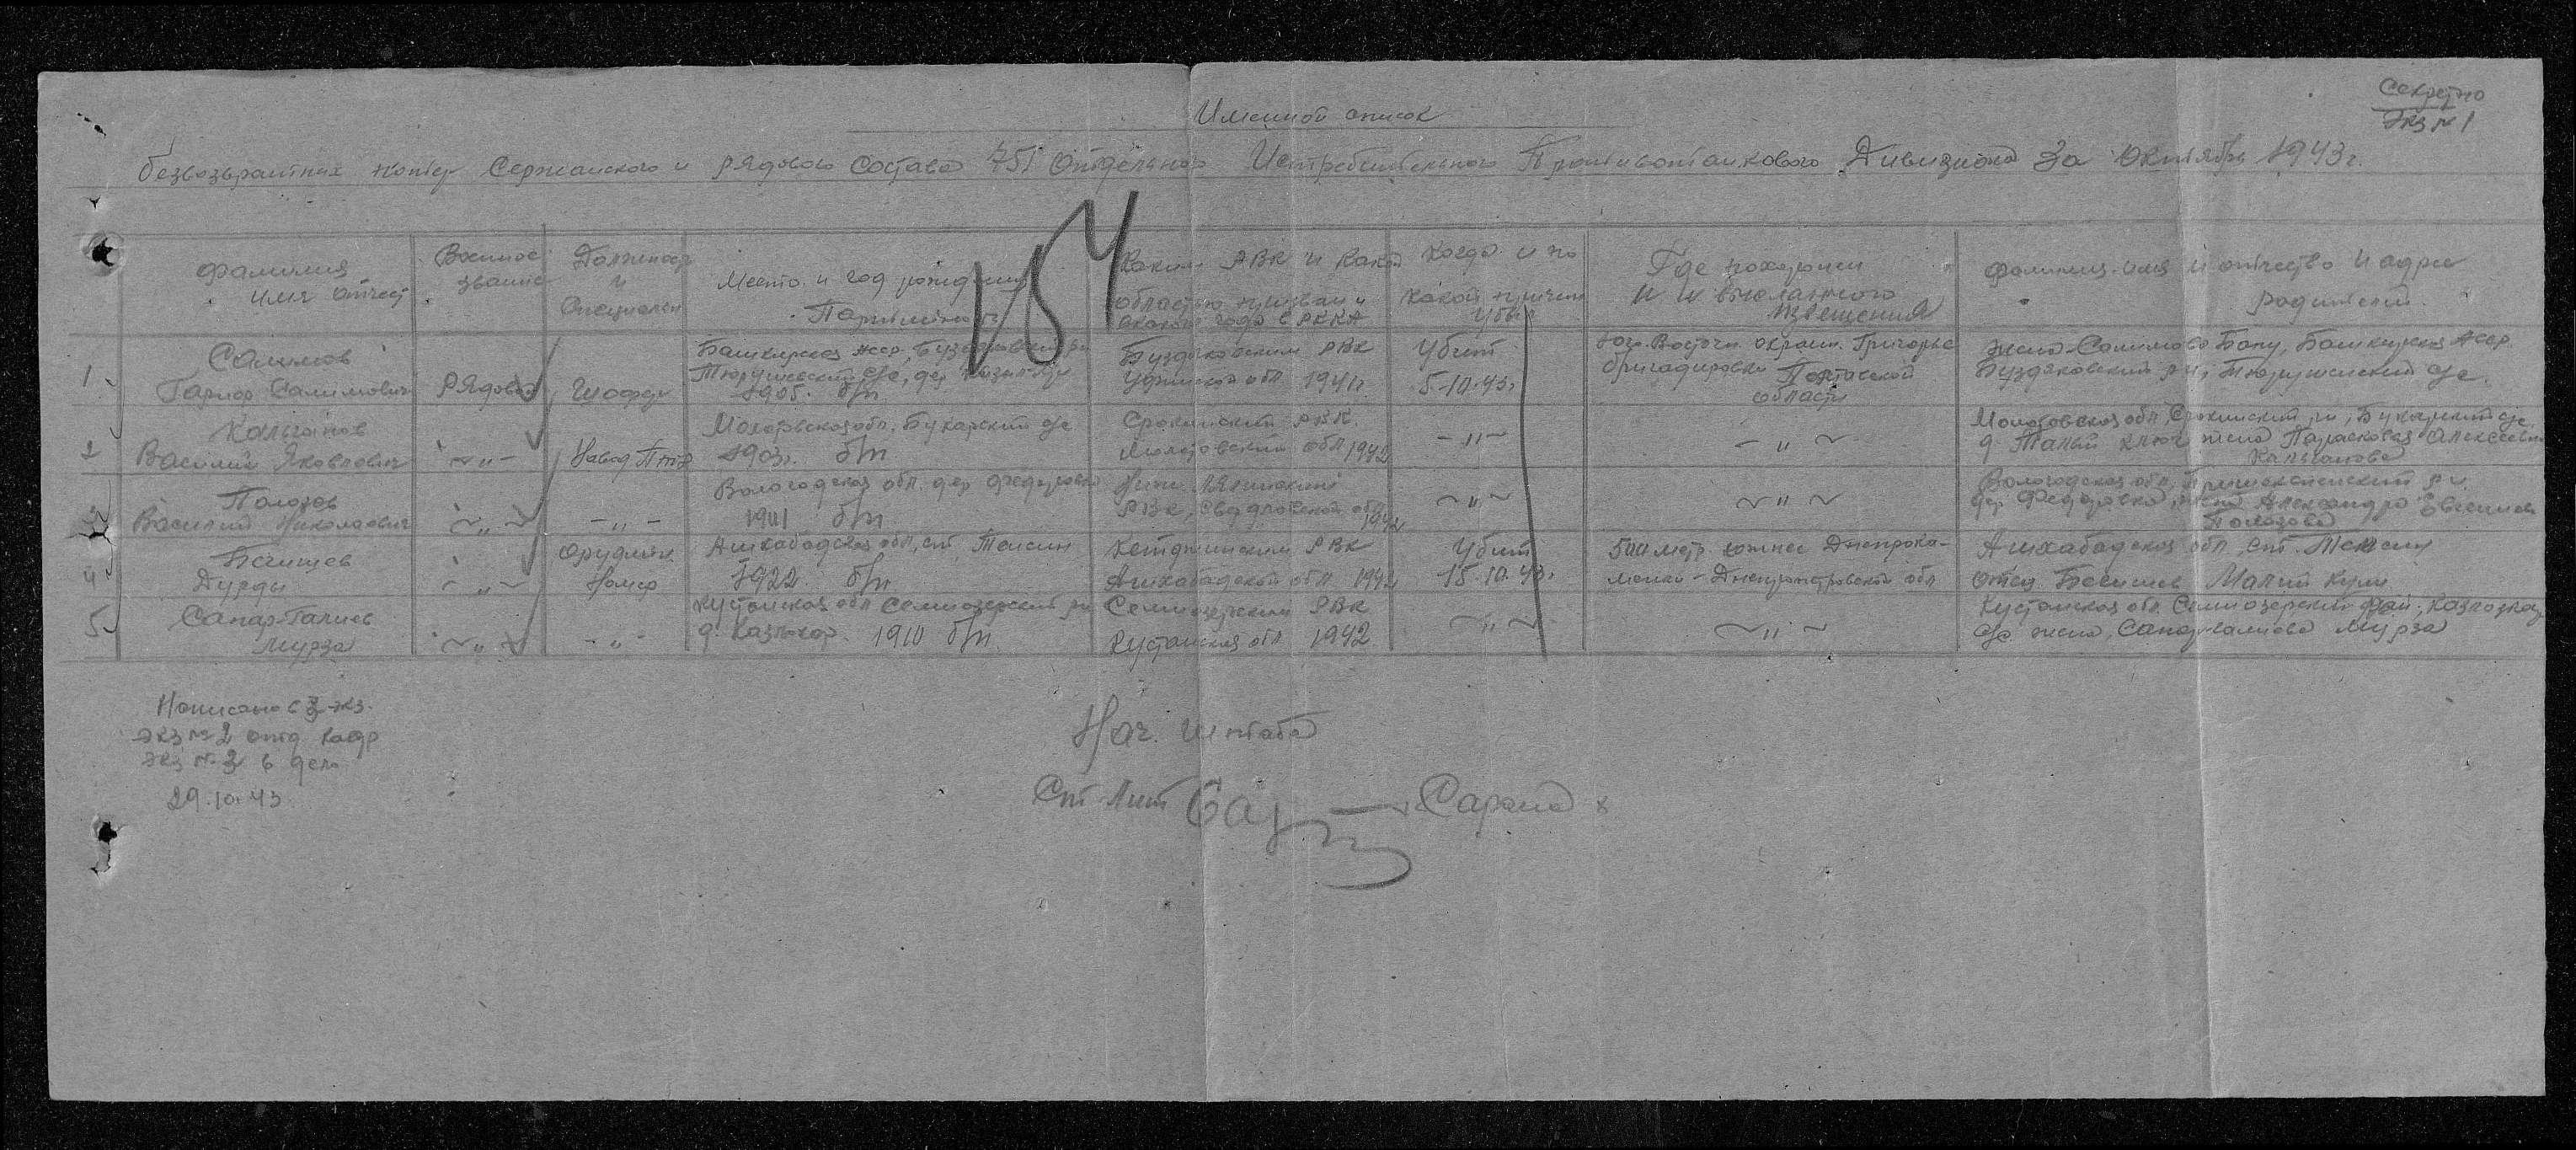 Секретно
Экз № 1
Именной список
безвозвратных потерь Сержанского и рядового состава 751 Отдельного Истребительного Противотанкового Дивизиона За Октябрь 1943 г.
154
Фамилия имя отчест
Военное звание
Должност и Специальн
Место и год рождения Партийность
Каким РВК и какой областью призван и с какого года в РККА
Когда и по какой причин убыл
Где похоронен и № высланного извещения
Фамилия имя и отчество и адрес родителей
1 Салимов
Гариф Салимович
Рядовой
Шофер
Башкирская АССР, Буздякский р-н
Тюрушевский с/с, дер
1905. б/п
Буздяковским РВК
Уфимской обл 1941 г.
Убит
5-10.43.
Юго-Восточ окраин. Григорье
бригадировки Полтавской
области
жена-Салимова Бану, Башкирская АССР
Буздяковский р-н, Тюрушевский с/с.
2 Кальганов
Василий Яковлевич
-"-
Навод ПТР
Молотовская обл. Букарский с/с
1903г. б/п
РВК.
Молотовской обл 1942
-"-
-"-
Молотовская обл, р-н, Букарский с/с
д Талый ключ жена Парасковья Алексеевна
Кальганова
3 Полозов
Василий Николаевич
-"-
-"-
Вологодская обл. дер Федоровка
1901 б/п
РВК, Свердловской обл 1942
-"-
-"-
Вологодская обл, р-н.
дер Федоровка, жена Александра
Полозова
4
Дурды
-"-
Орудийн
Номер
Ашхабадская обл, ст.
1922 б/п
РВК
Ашхабадской обл 1942
Убит
15.10.43.
500 метр. южнее Днепрока-
менки - Днепропетровской обл
Ашхабадская обл, ст.
отец
5 Сапар-Галиев
Мурза
-"-
-"-
Кустанская обл Семиозерский р-н
д. 1910 б/п
Семиозерским РВК
Кустанская обл 1942
-"-
-"-
Кустанская обл. Семиозерский рай.
с/с жена, Сапаргалиева Мурза
Написано в 3 экз.
экз № 2 отд кадр
экз № 3 в дело
29.10.43
Нач. штаба
Ст Лит